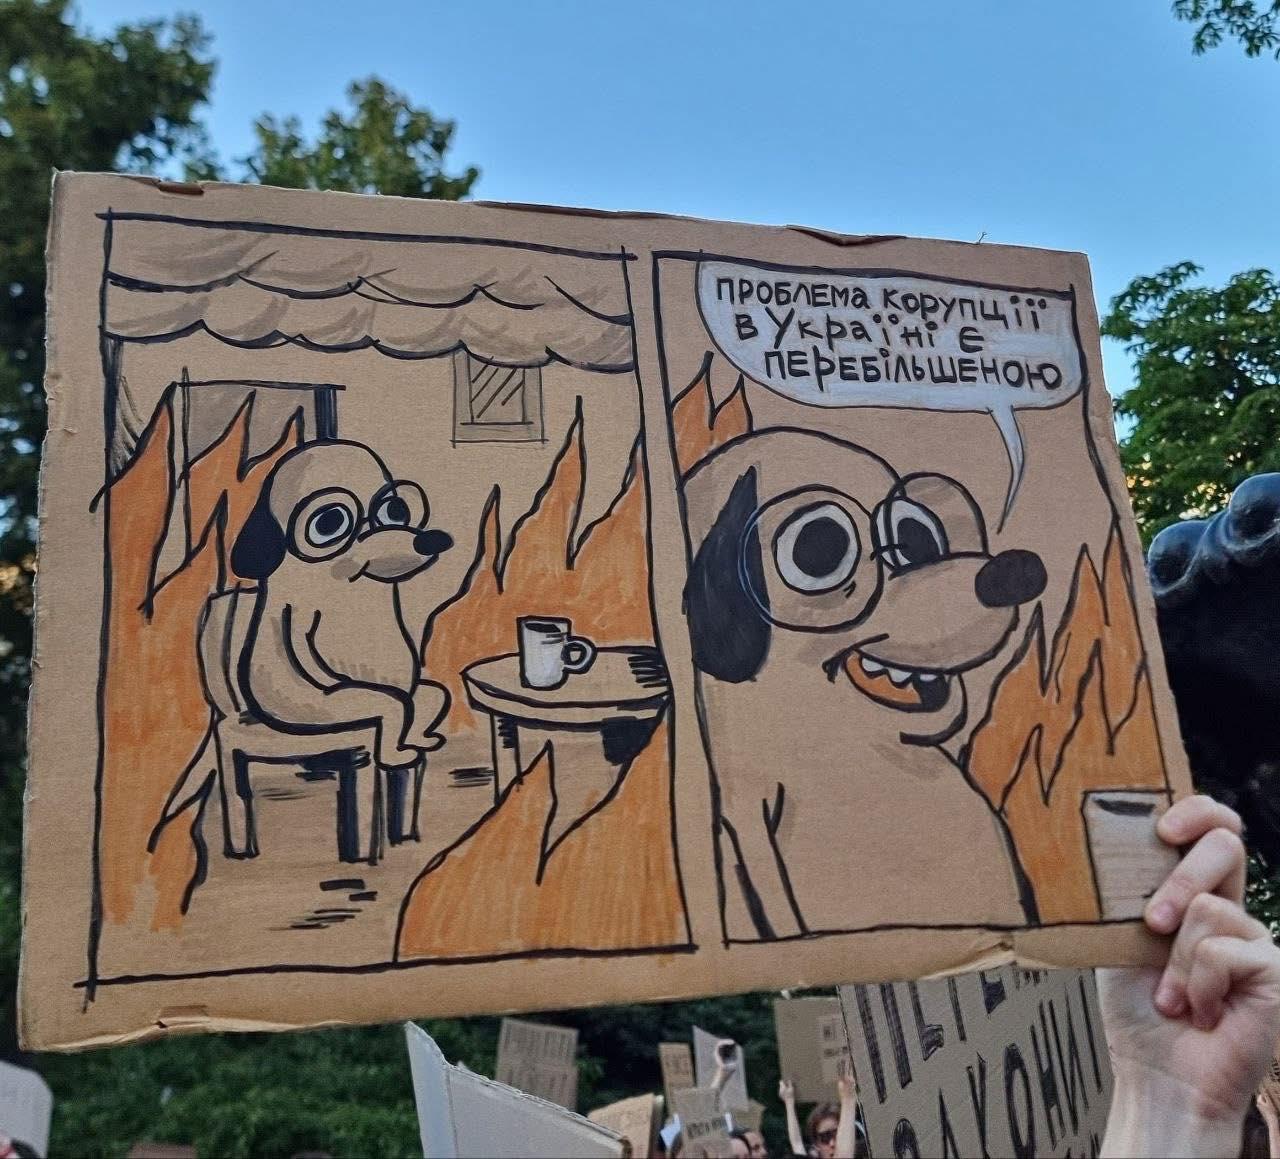 ПРОБЛЕМА КОРУПЦІЇ
В УКРАЇНІ Є
ПЕРЕБІЛЬШЕНОЮ